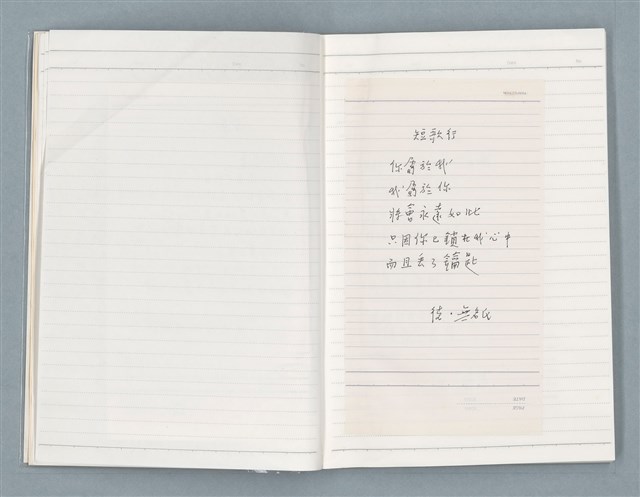 短歌行
你屬於我
我屬於你
將會永遠如此
只因你已鎖在我心中
而且丟了鑰匙
德·無名氏
DATE
PAGE